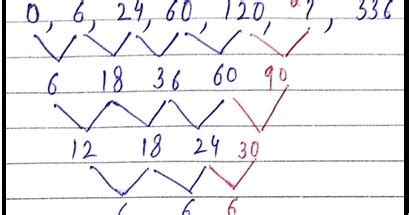 0, 6, 24, 60, 120, ?, 336
6 18 36 60 90
12 18 24 30
6 6 6